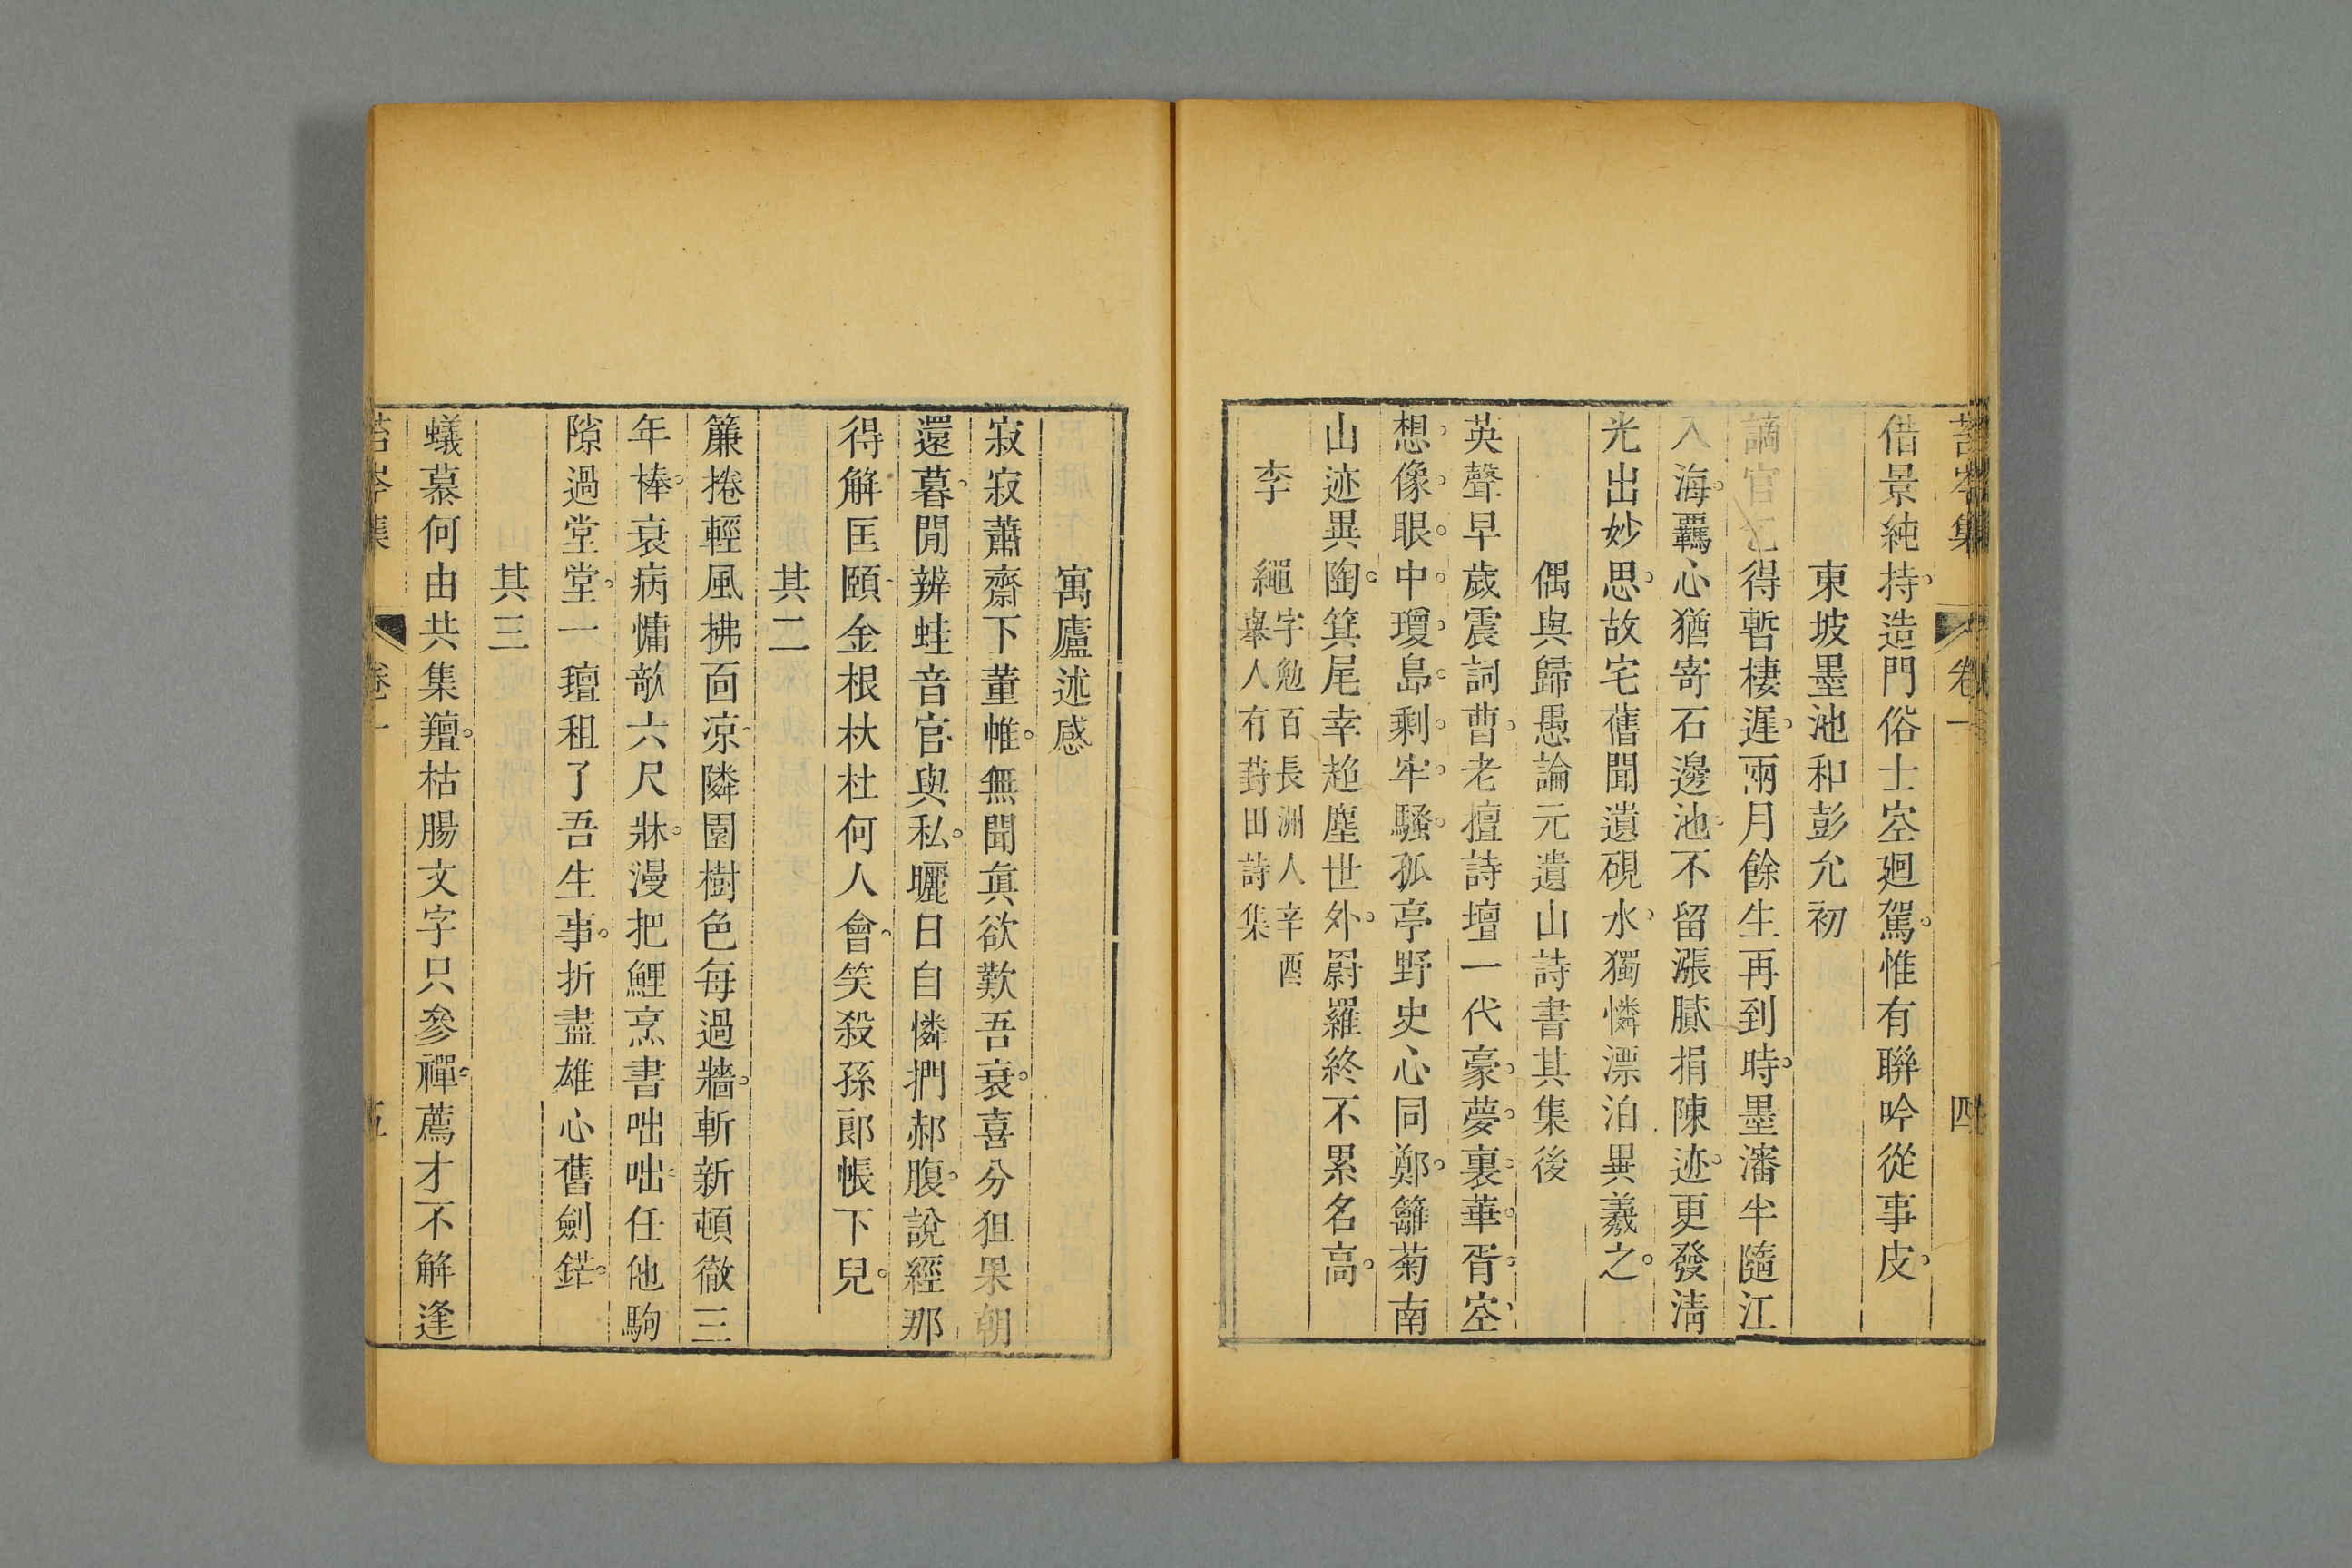 苔岑集 卷一 四
借景純持造門俗士空廻駕惟有聯吟從事皮
東坡墨池和彭允初
謫官乞得暫棲遲兩月餘生再到時墨瀋半隨江
入海羈心猶寄石邊池不留漲膩捐陳迹更發淸
光出妙思故宅舊聞遺硯水獨憐漂泊異羲之
偶與歸愚論元遺山詩書其集後
英聲早歲震詞曹老擅詩壇一代豪夢裏華胥空
想像眼中瓊島剩牢騷孤亭野史心同鄭籬菊南
山迹異陶箕尾幸超塵世外罻羅終不累名高
李繩字勉百長洲人辛酉
舉人有葑田詩集
寓廬述感
寂寂蕭齋下董帷無聞眞欲歎吾衰喜分狙果朝
還暮閒辨蛙音官與私曬日自憐捫郝腹說經那
得解匡頤金根杕杜何人會笑殺孫郞帳下兒
其二
簾捲輕風拂面凉隣園樹色每過牆斬新頓徹三
年棒衰病慵欹六尺牀漫把鯉烹書咄咄任他駒
隙過堂堂一瓊租了吾生事折盡雄心舊劍鋩
其三
蟻慕何由共集羶枯腸文字只參禪薦才不解逢
苔岑集 卷一 五